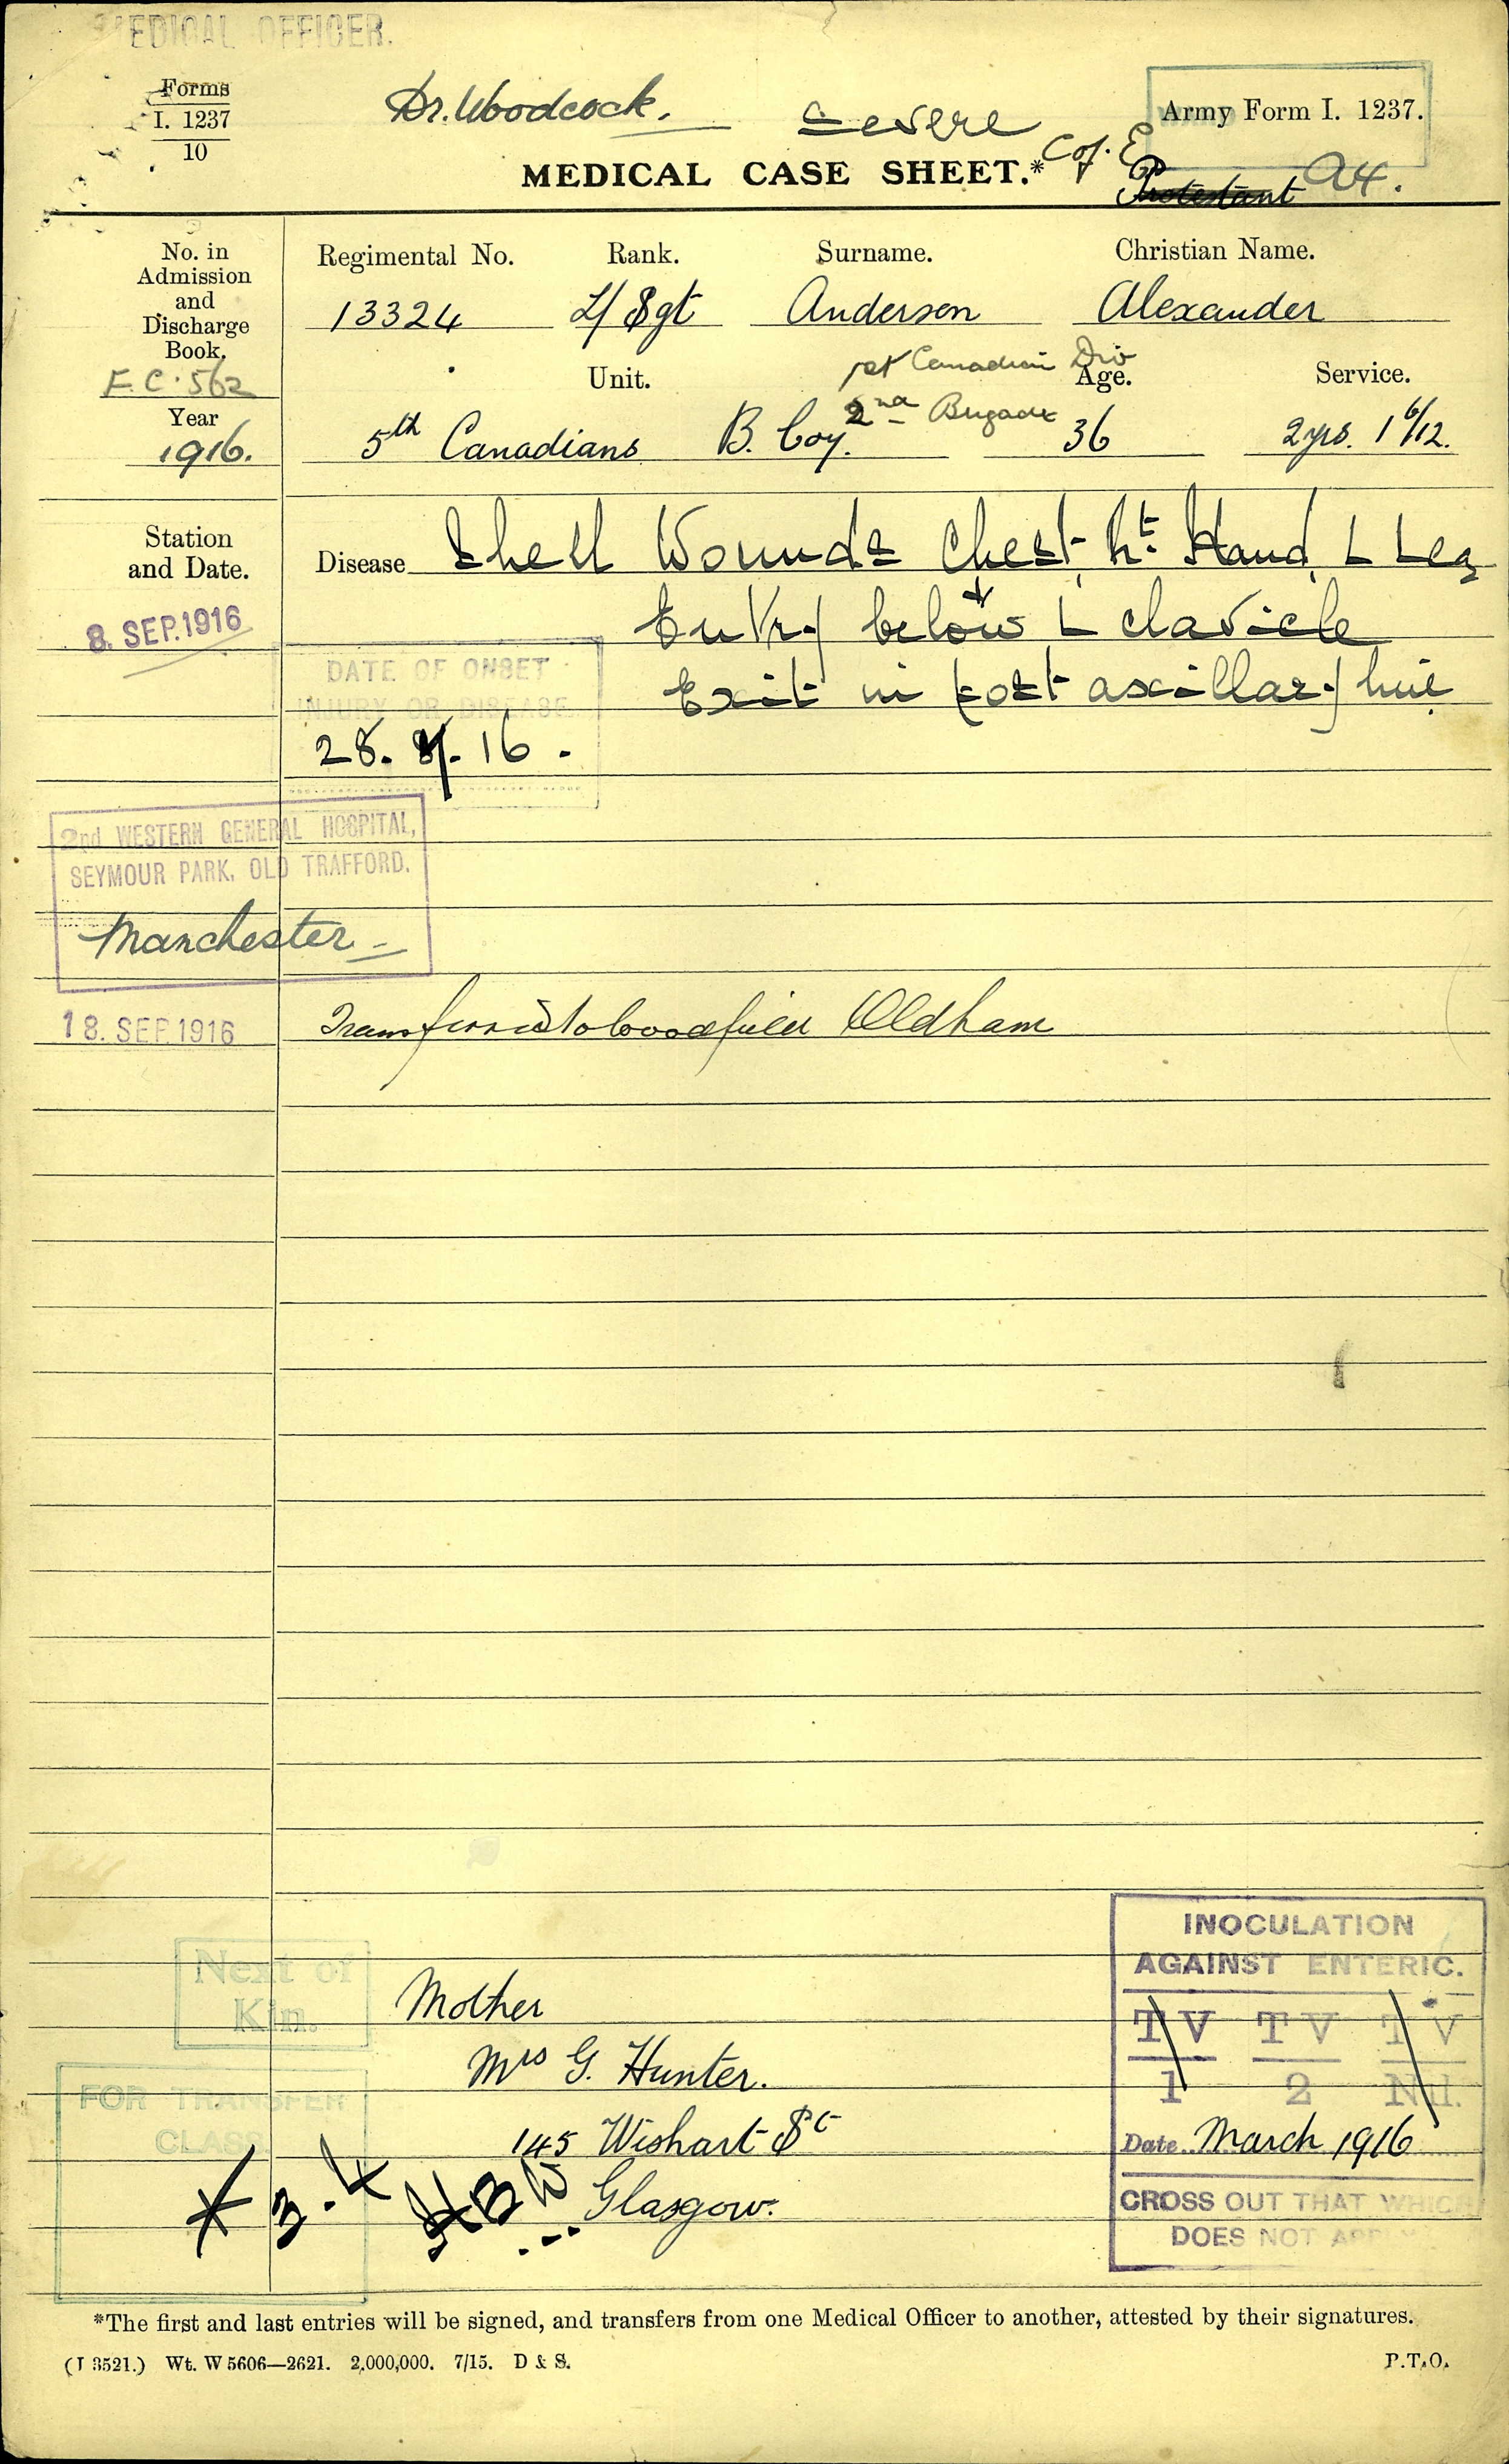 MEDICAL OFFICER.
Forms
I. 1237
10
Dr. Woodcock.
Severe
Army Form I. 1237.
MEDICAL CASE SHEET.*
C of. E
Protestant
A4.
No. in
Admission
and
Discharge
Book.
F.C. 562
Year
1916.
Regimental No. Rank. Surname. Christian Name.
13324 L/Sgt Anderson Alexander
1st Canadian Div
Unit. Age. Service.
2nd Brigade
5th Canadians B. Coy. 36 2yrs. 1 6/12.
Station
and Date.
Disease Shell Wounds Chest, Rt. Hand, L Leg
8. SEP. 1916
Entry below L clavicle
DATE OF ONSET
INJURY OR DISEASE
Exit in post axillary line
28. 8. 16.
2nd WESTERN GENERAL HOSPITAL,
SEYMOUR PARK, OLD TRAFFORD.
Manchester
18. SEP. 1916 Transferred to Woodfield Oldham
INOCULATION
AGAINST ENTERIC.
TV TV TV
1 2 Nil.
Date March 1916
CROSS OUT THAT WHICH
DOES NOT APPLY
Next of
Kin.
Mother
Mrs G. Hunter.
145 Wishart St
Glasgow.
FOR TRANSFER
CLASS.
*The first and last entries will be signed, and transfers from one Medical Officer to another, attested by their signatures.
(J 3521.) Wt. W 5606—2621. 2,000,000. 7/15. D & S. P.T.O.